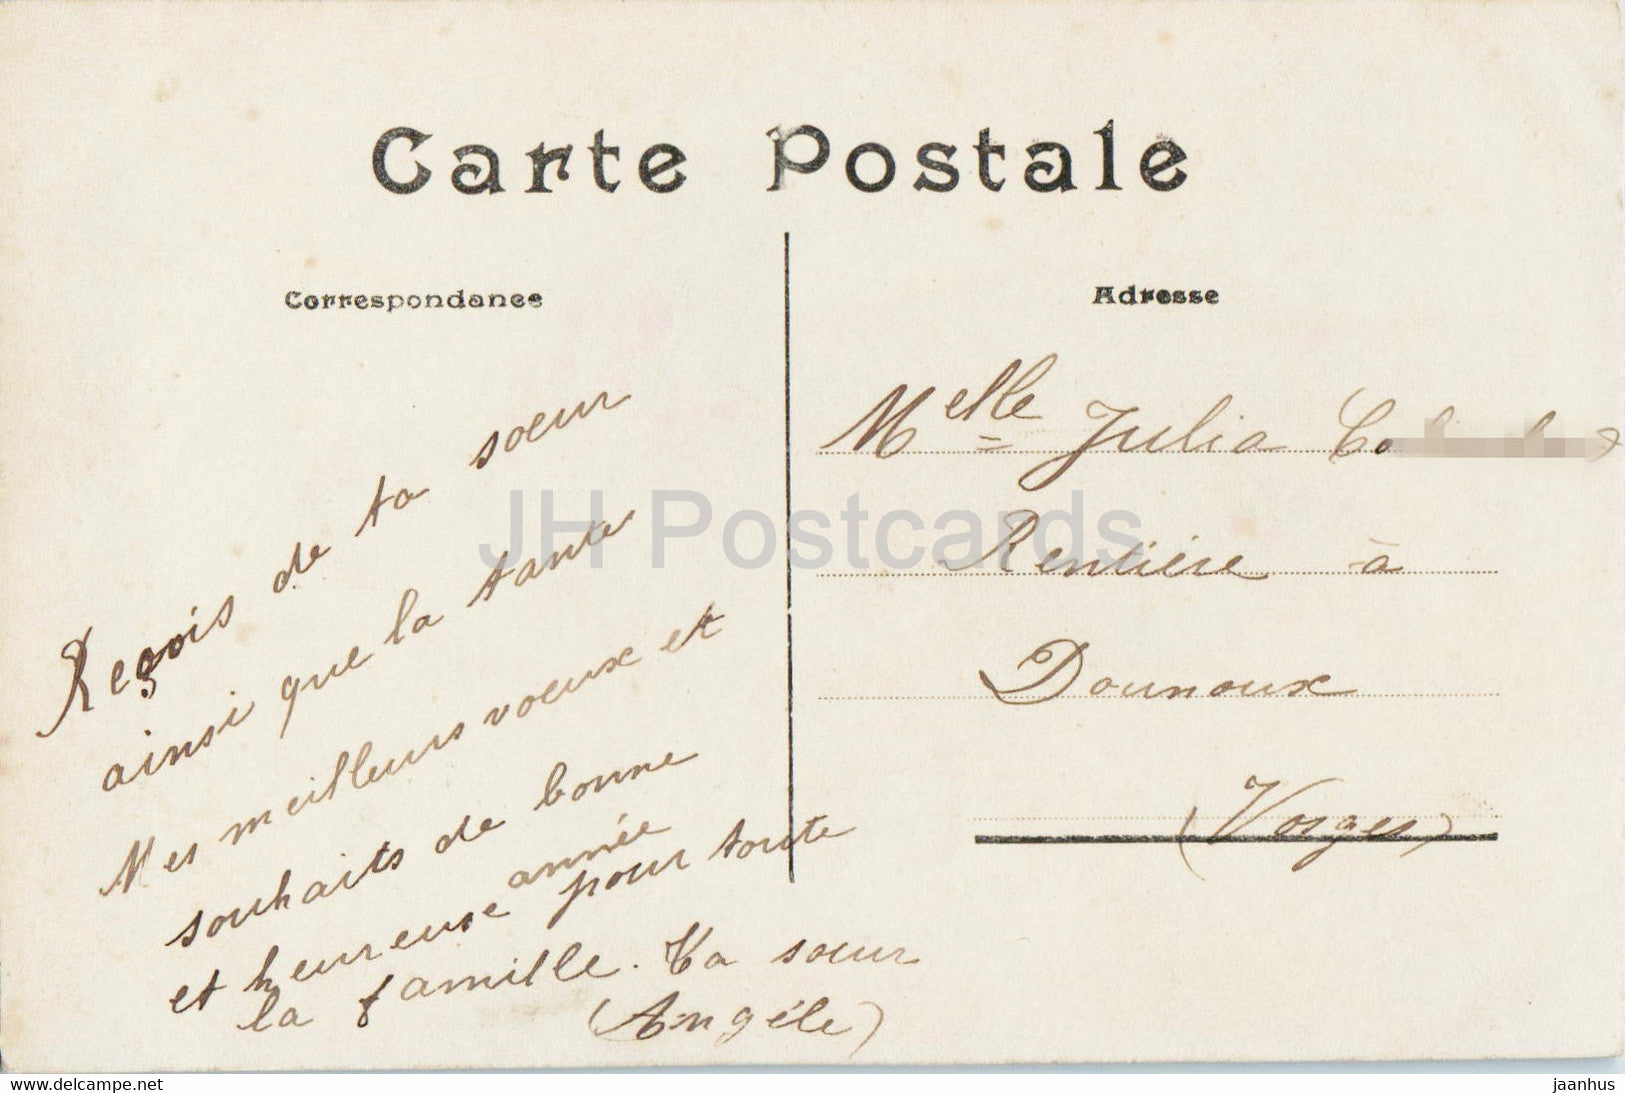 Carte Postale
Correspondance
Adresse
Reçois de ta sœur
ainsi que la tante
Mes meilleurs voeux et
souhaits de bonne
et heureuse année
pour toute
la famille. Ta sœur
(Angéle)
Melle Julia
Rentière à
Dounoux
(Vosges)
JH Postcards
www.delcampe.net
jaanhus